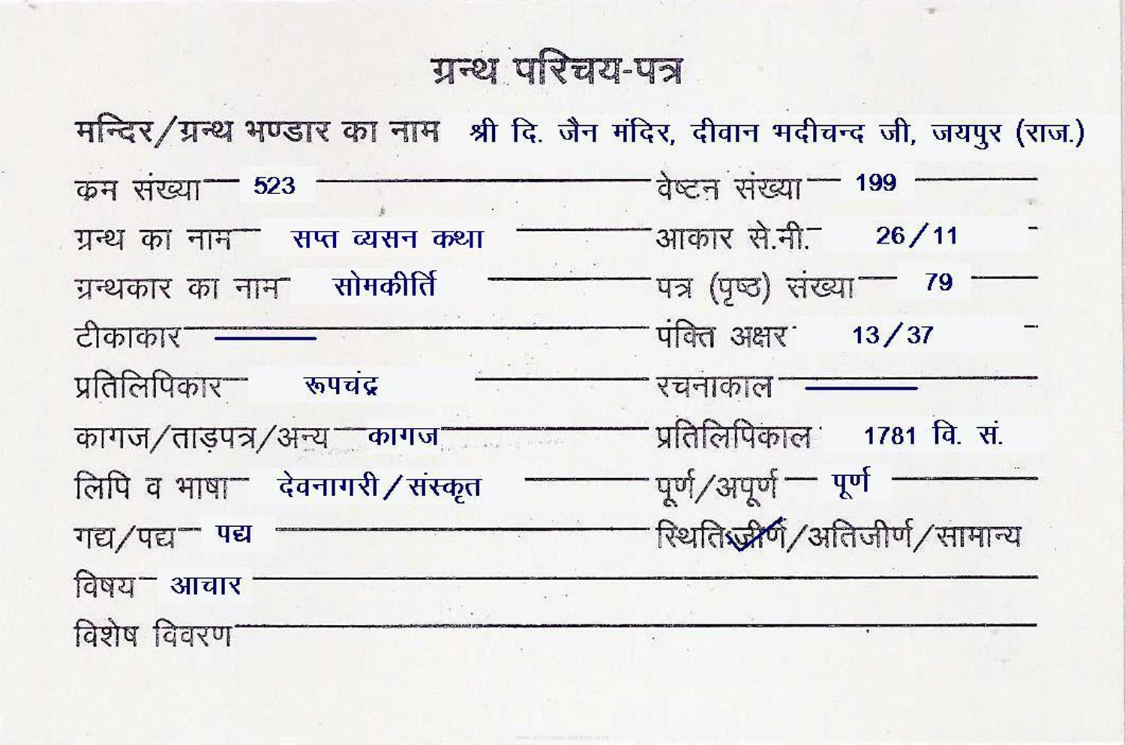 ग्रन्थ परिचय-पत्र
मन्दिर/ग्रन्थ भण्डार का नाम श्री दि. जैन मंदिर, दीवान भदीचन्द जी, जयपुर (राज.)
क्रम संख्या 523 वेष्टन संख्या 199
ग्रन्थ का नाम सप्त व्यसन कथा आकार से.मी. 26/11
ग्रन्थकार का नाम सोमकीर्ति पत्र (पृष्ठ) संख्या 79
टीकाकार पंक्ति अक्षर 13/37
प्रतिलिपिकार रूपचंद्र रचनाकाल
कागज/ताड़पत्र/अन्य कागज प्रतिलिपिकाल 1781 वि. सं.
लिपि व भाषा देवनागरी/संस्कृत पूर्ण/अपूर्ण पूर्ण
गद्य/पद्य पद्य स्थिति जीर्ण/अतिजीर्ण/सामान्य
विषय आचार
विशेष विवरण